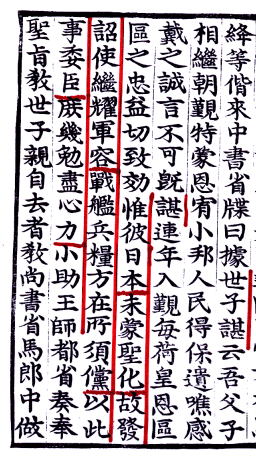 絳等偕來中書省牒曰據世子諶云吾父子
相繼朝覲特蒙恩宥小邦人民得保遺噍感
戴之誠言不可旣諶連年入覲每荷皇恩區
區之忠益切致効惟彼日本未蒙聖化故發
詔使繼耀軍容戰艦兵糧方在所須儻以此
事委臣庶幾勉盡心力小助王師都省奏奉
聖旨敎世子親自去者敎尚書省馬郎中做